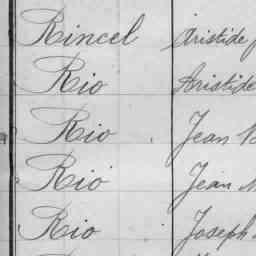 Rincel Aristide
Rio Aristide
Rio Jean
Rio Jean
Rio Joseph